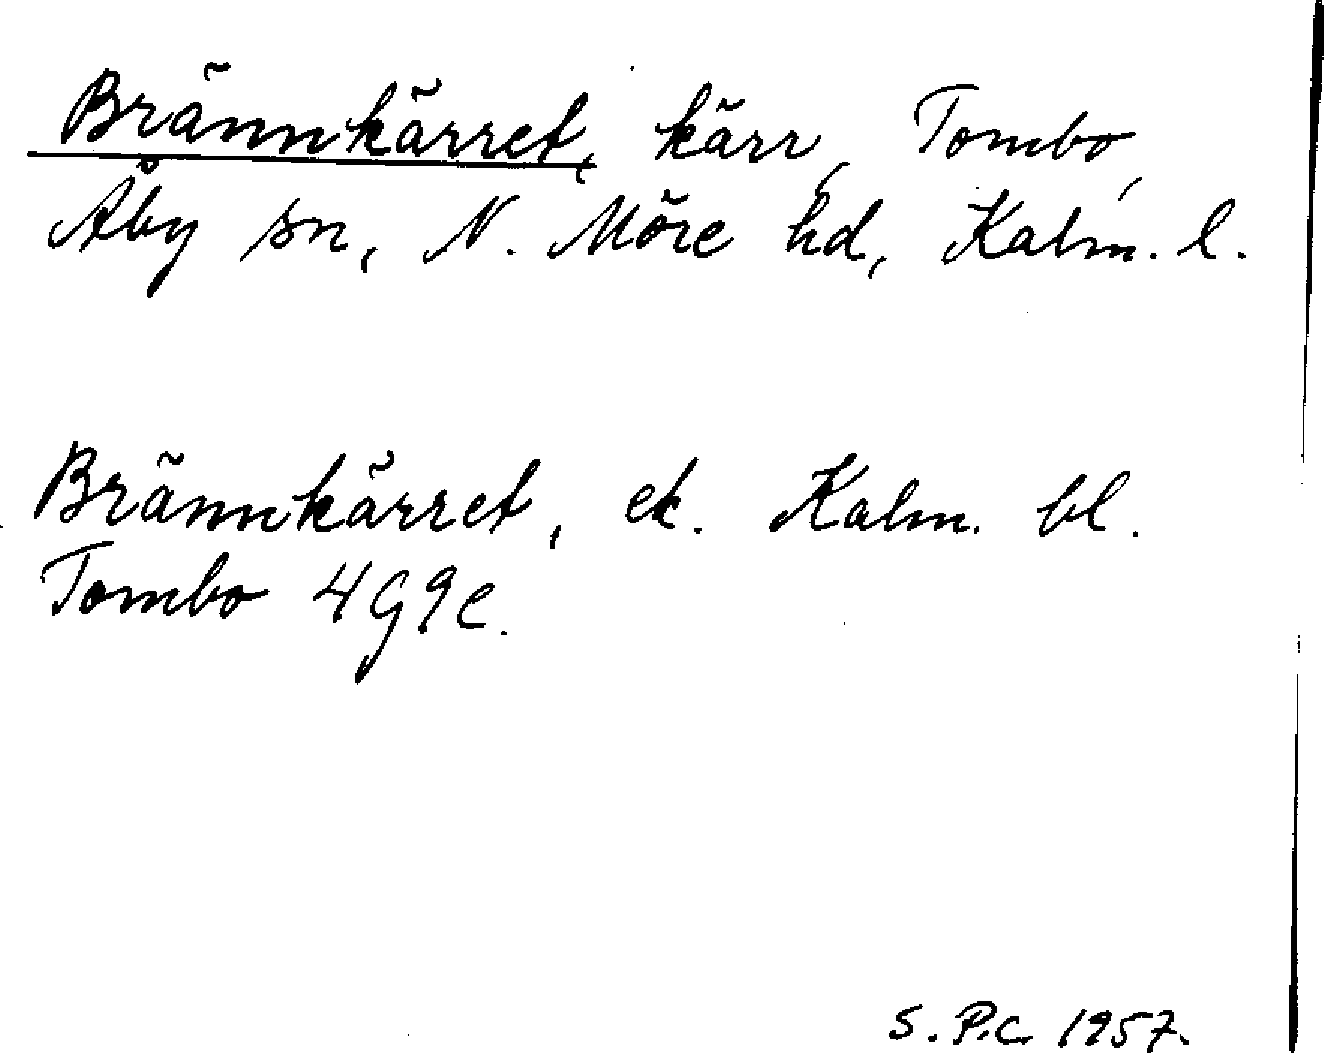 Brännkärret, kärr, Tombo,
Åby sn, N. Möre hd, Kalm. l.
Brännkärret, ek. Kalm. bl.
Tombo 4G9c.
S.P.C. 1957.